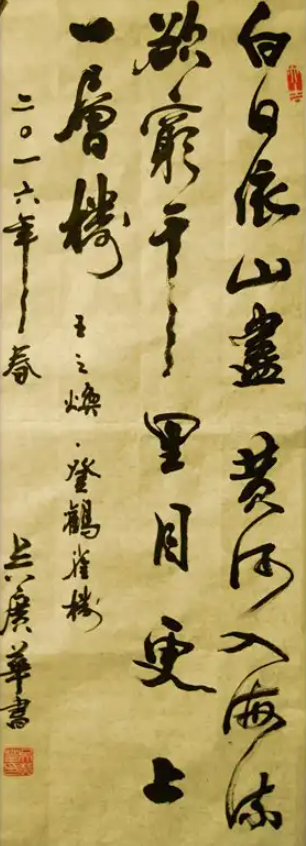 白日依山盡黄河入海流
欲窮千里目更上
一層樓 王之煥·登鶴雀樓
二〇一六年春 廣華書